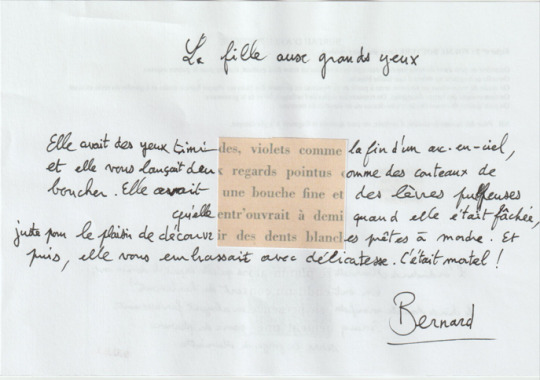 La fille aux grands yeux
Elle avait des yeux timides, violets comme la fin d'un arc-en-ciel,
et elle vous lançait deux regards pointus comme des couteaux de
boucher. Elle avait une bouche fine et des lèvres pulpeuses
qu'elle entr'ouvrait à demi quand elle était fâchée,
juste pour le plaisir de découvrir des dents blanches prêtes à mordre. Et
puis, elle vous embrassait avec délicatesse. C'était mortel !
Bernard